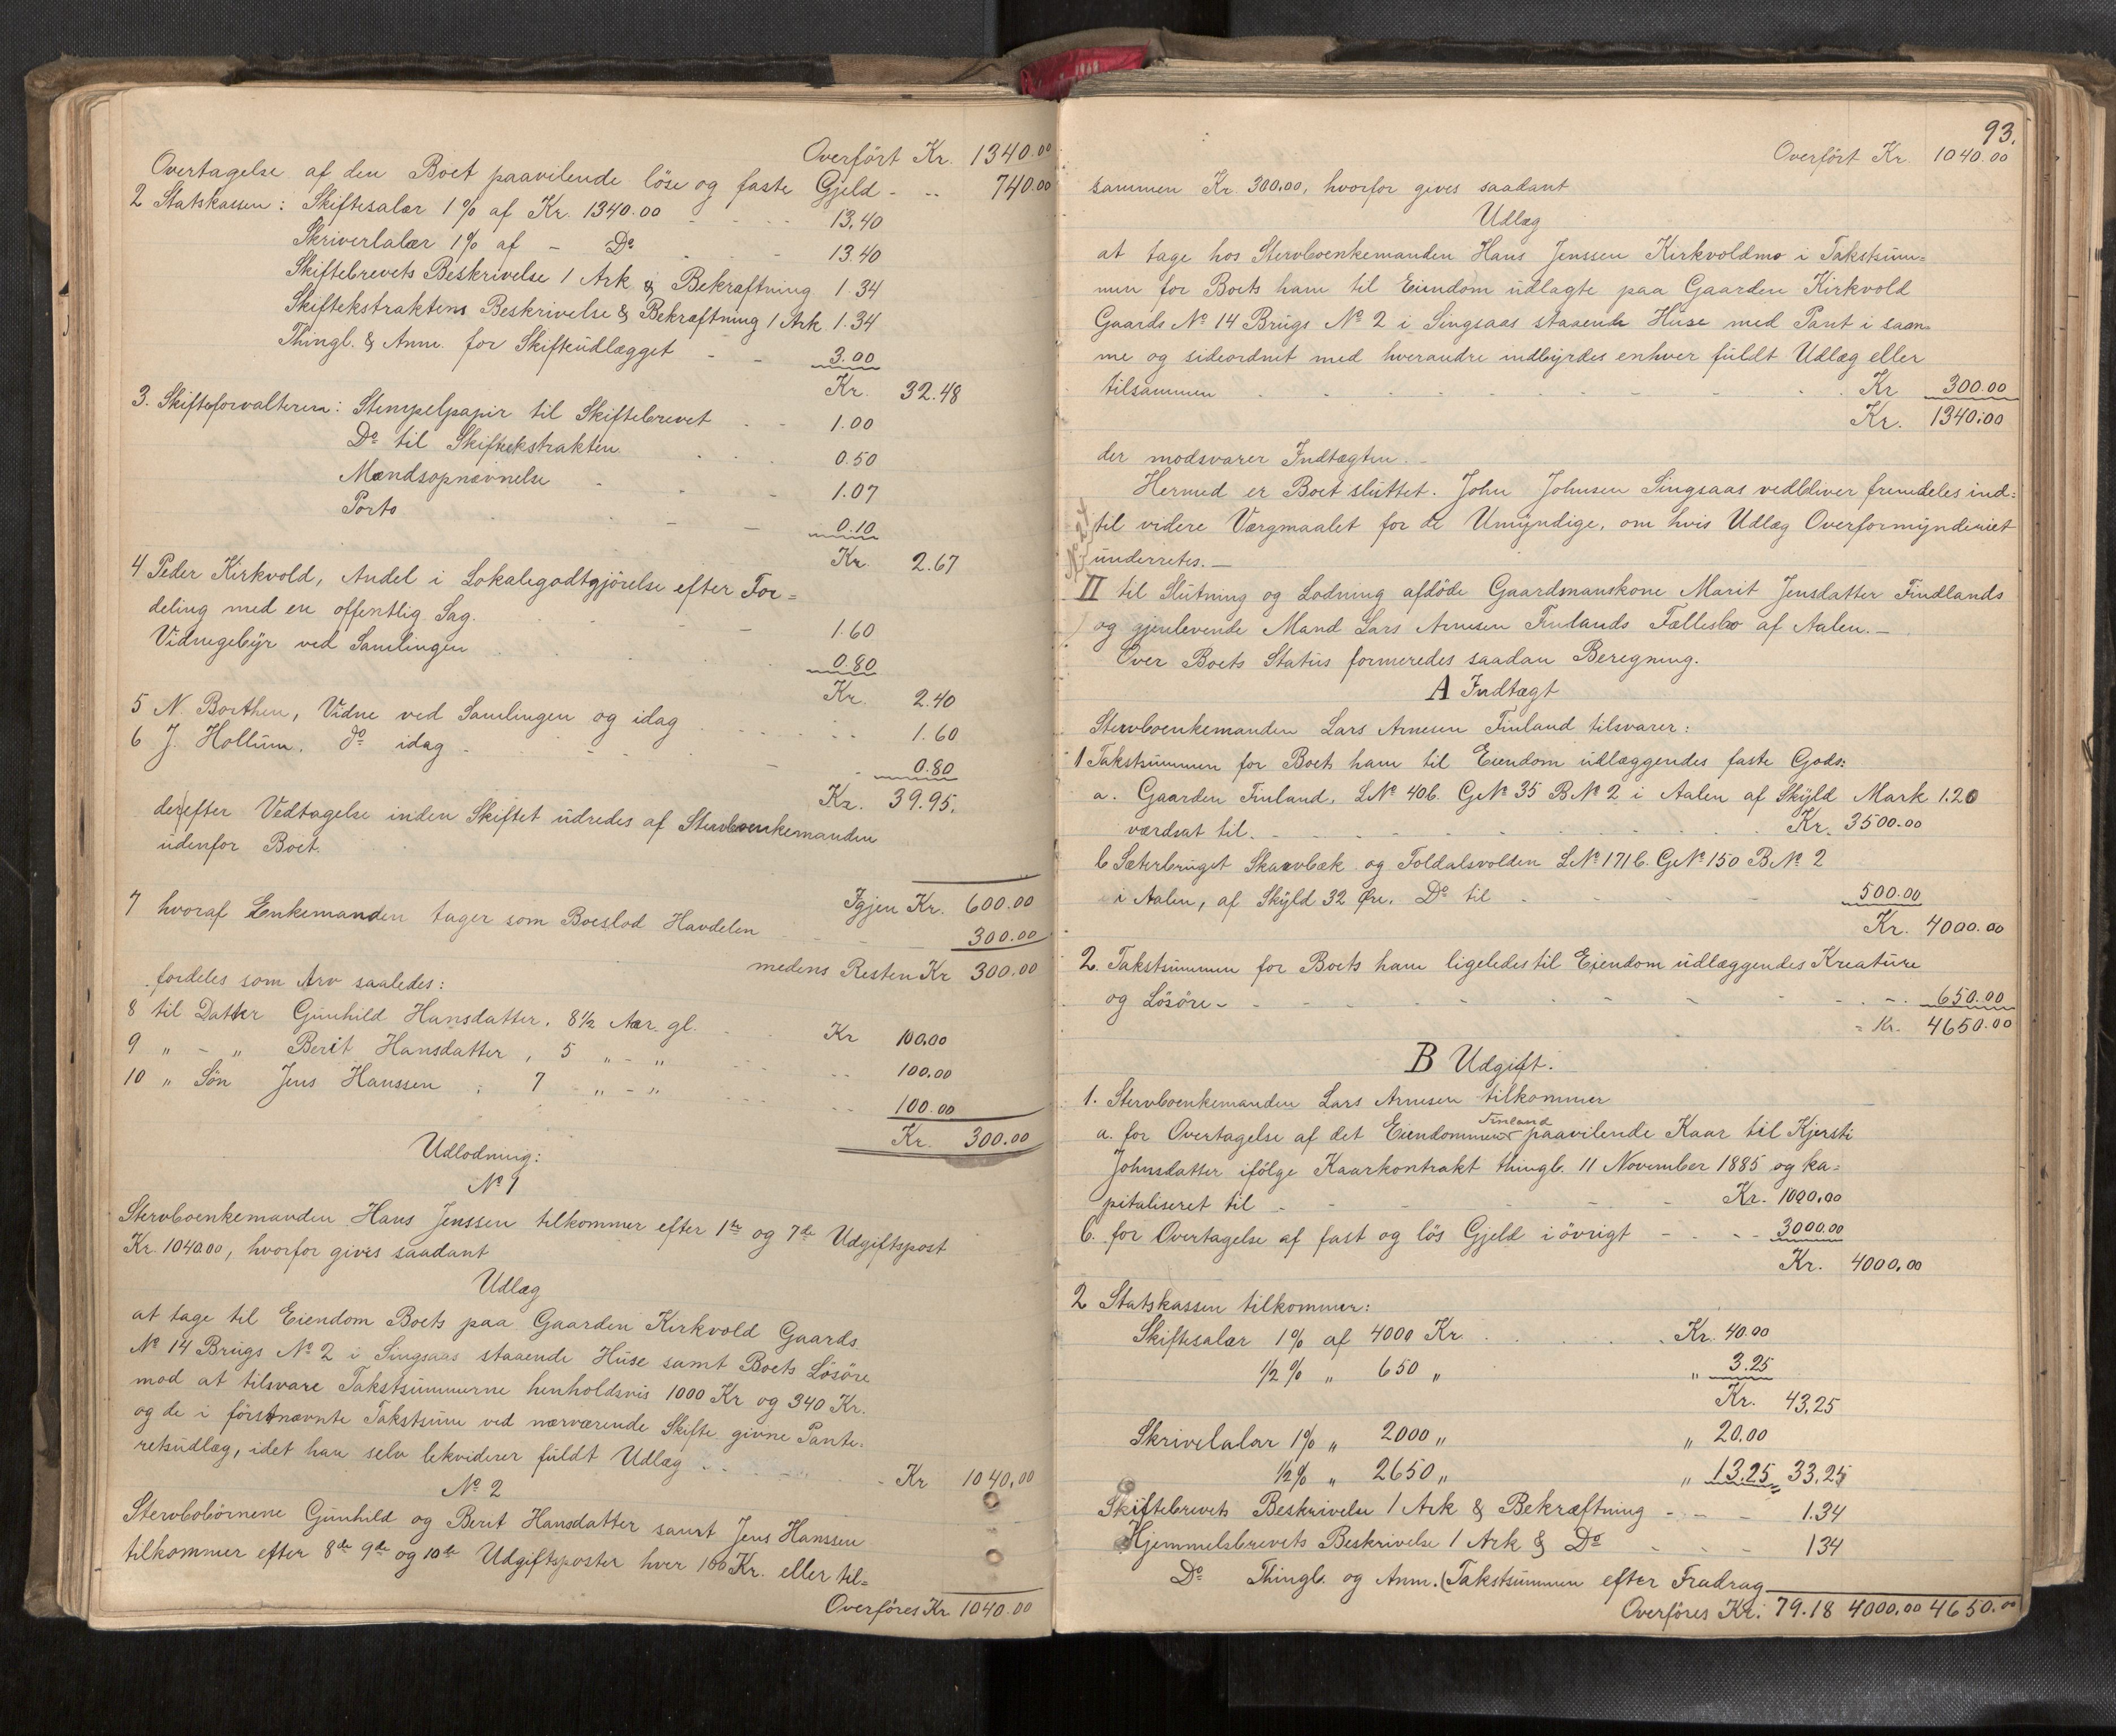 Overført Kr. 1340.00
Overtagelse af den Boet paavilende löse og faste Gjeld - -- 740.00
2 Statskassen: Skiftesalær 1% af Kr. 1340.00 - - - 13.40
Skriverlalær 1% af - Do - - - 13.40
Skiftebrevets Beskrivelse 1 Ark & Bekræftning 1.34
Skiftekstraktens Beskrivelse & Bekræftning 1 Ark 1.34
Thingl. & Anm. for Skifteudlægget - - 3.00
Kr. 32.48
3. Skifteforvalteren: Stempelpapir til Skiftebrevet - - 1.00
Do til Skiftekstrakten . . . 0.50
Mændsopnævnelse - - - 1.07
Porto - - 0.10
Kr. 2.67
4 Peder Kirkvold, Andel i Lokalegodtgjörelse efter For=
deling med en offentlig Sag. - - - 1.60
Vidnegebyr ved Samlingen . . . 0.80
Kr. 2.40
5 N. Borthen, Vidne ved Samlingen og idag . . . 1.60
6 J. Hollum. do idag - - - 0.80
Kr. 39.95.
der efter Vedtagelse inden Skiftet udredes af Stervboenkemanden
udenfor Boet.
Igjen Kr. 600.00
7 hvoraf Enkemanden tager som Boeslod Havdelen - - 300.00
medens Resten Kr 300.00
fordeles som Arv saaledes:
8 til Datter Gunhild Hansdatter, 8½ Aar gl. - - Kr 100.00
9 " - " Berit Hansdatter, 5 " - " - - 100.00
10 " Sön Jens Hanssen , 7 " - " - - 100.00
Kr. 300.00
Udlodning:
No 1
Stervboenkemanden Hans Jenssen tilkommer efter 1ste og 7de Udgiftspost
Kr. 1040.00, hvorfor gives saadant
Udlæg
at tage til Eiendom Boets paa Gaarden Kirkvold Gaards
No 14 Brugs No 2 i Singsaas staaende Huse samt Boets Lösöre
mod at tilsvare Takstsummerne henholdsvis 1000 Kr og 340 Kr.
og de i förstnævnte Takstsum ved nærværende Skifte givne Pante-
retsudlæg, idet han selv lekviderer fuldt Udlæg - - - Kr 1040,00
No 2
Stervbobörnene Gunhild og Berit Hansdatter samt Jens Hanssen
tilkommer efter 8de 9de og 10de Udgiftsposter hver 100 Kr. eller til=
Overföres Kr. 1040.00
93.
Overfört Kr 1040.00
sammen Kr. 300.00, hvorfor gives saadant
Udlæg
at tage hos Stervboenkemanden Hans Jenssen Kirkvoldmo i Takstsum=
men for Boets ham til Eiendom udlagte paa Gaarden Kirkvold
Gaards No 14 Brugs No 2 i Singsaas staaende Huse med Pant i sam-
me og sideordnet med hverandre indbyrdes enhver fuldt Udlæg eller
tilsammen . . . . Kr 300.00
Kr. 1340.00
der modsvarer Indtægten. -
Hermed er Boet sluttet. John Johnsen Singsaas vedbliver fremdeles ind=
til videre Værgmaalet for de Umyndige, om hvis Udlæg Overformynderiet
underretes. -
II til Slutning og Lodning afdöde Gaardmandskone Marit Jensdatter Findlands
og gjenlevende Mand Lars Arnesen Finlands Fællesbo af Aalen. -
Over Boets Status formeredes saadan Beregning.
A Indtægt
Stervboenkemanden Lars Arnesen Finland tilsvarer:
1 Takstsummen for Boets ham til Eiendom udlæggendes faste Gods:
a. Gaarden Finland, LNo 40b. GNo 35 BNo 2 i Aalen af Skyld Mark 1.20
værdsat til. - - - Kr. 3500.00
b Sæterbruget Skarvbæk og Foldalsvolden LNo 171b. GNo 150 BNo 2
i Aalen, af Skyld 32 Øre. Do til - - - 500.00
Kr. 4000.00
2. Takstsummen for Boets ham ligeledes til Eiendom udlæggendes Kreature
og Lösöre - - - 650.00
= Kr. 4650.00
B Udgift.
1. Stervboenkemanden Lars Arnesen tilkommer
Finland
a. for Overtagelse af det Eiendommen paavilende Kaar til Kjersti
Johnsdatter ifölge Kaarkontrakt thingl. 11 November 1885 og ka=
pitaliseret til - - - Kr. 1000.00
b. for Overtagelse af fast og lös Gjeld i övrigt - - - 3000.00
Kr. 4000.00
2 Statskassen tilkommer:
Skiftesalær 1% af 4000 Kr. . . . Kr. 40.00
½% " 650 " " 3.25
Kr. 43.25
Skrivelalær 1% " 2000 " " 20.00
½% " 2650 " " 13.25 33.25
Skiftebrevets Beskrivelse 1 Ark & Bekræftning - - - 1.34
Hjemmelsbrevets Beskrivelse 1 Ark & Do - - - 134
Do Thingl. og Anm. (Takstsummen efter Fradrag
Overföres Kr. 79.18 4000.00 4650.00